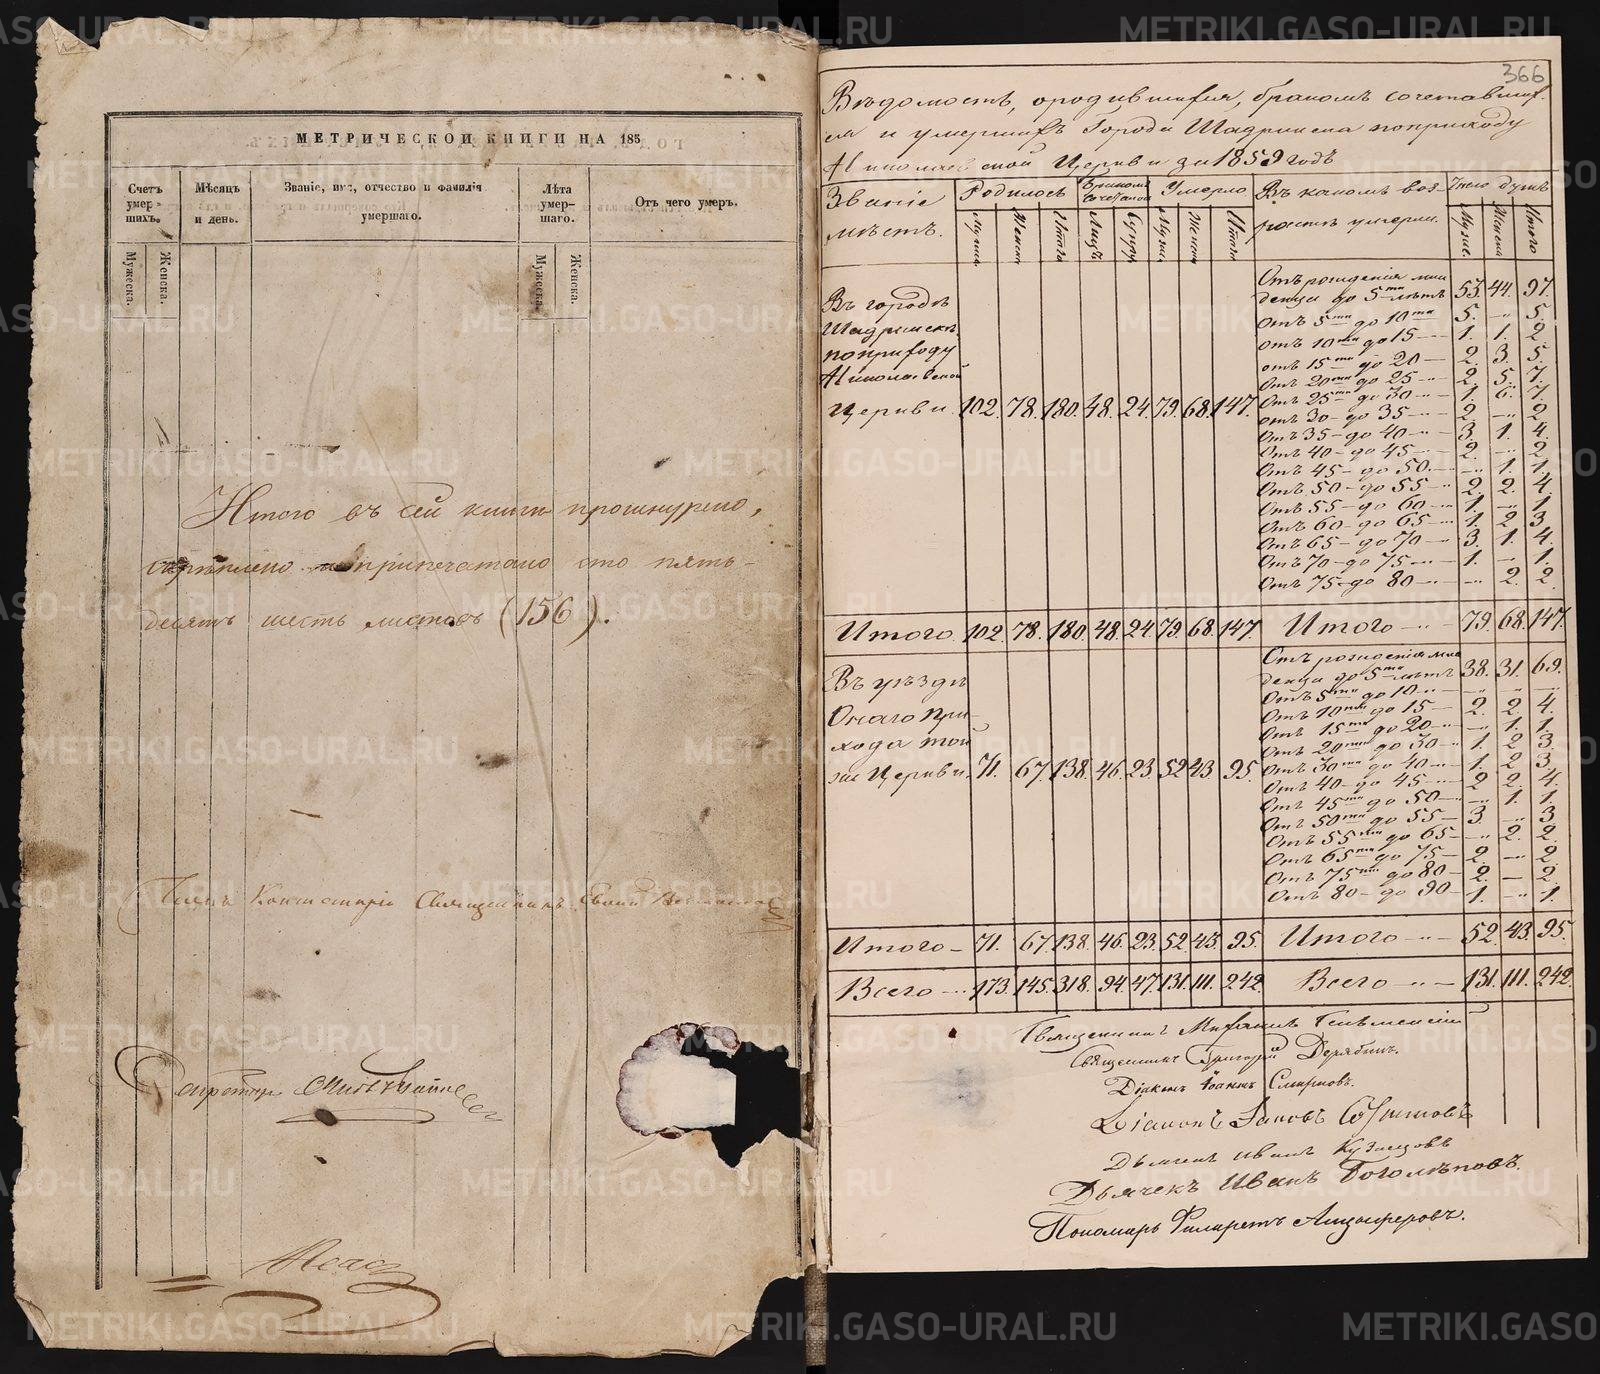 МЕТРИЧЕСКОЙ КНИГИ НА 185
Счетъ умер-шихъ.
Мѣсяцъ и день.
Званіе, имя, отчество и фамилія умершаго.
Лѣта умер-шаго.
Отъ чего умеръ.
Мужеска. Женска.
Мужеска. Женска.
Итого въ сей книгѣ прошнурено,
скрѣплено и припечатано сто пять-
десятъ шесть листовъ (156).
Членъ Консисторіи Священникъ
Секретарь
366
Вѣдомость, ородившихся, бракомъ сочетавших-
ся и умершихъ Города Шадринска поприходу
Николаевской Церкви за 1859 годъ
Званіе мѣстъ.
Родилось
Бракомъ Сочетаной
Умерло
Въ какомъ воз-растѣ умерли.
Число душъ
Мужес. Женска Итого
Въ городѣ
Шадринскѣ
поприходу
Николаевской
Церкви. 102. 78. 180. 48. 24. 79. 68. 147.
Отъ рожденія мла
денца до 5ти лѣтъ 53. 44. 97.
Отъ 5ти до 10ти 5. -"- 5.
Отъ 10ти до 15 1. 1. 2
отъ 15ти до 20 2. 3. 5.
Отъ 20ти до 25 2. 5. 7.
Отъ 25ти до 30 1. 6. 7.
отъ 30 до 35 2. -"- 2
Отъ 35 до 40 3. 1. 4.
Отъ 40 до 45 2. -"- 2
Отъ 45 до 50 -"- 1. 1.
Отъ 50 до 55 2. 2. 4.
Отъ 55 до 60 1. -"- 1
Отъ 60 до 65 1. 2. 3
Отъ 65 до 70 3. 1. 4.
Отъ 70 до 75 1. -"- 1.
Отъ 75 до 80 -"- 2. 2.
Итого 102. 78. 180. 48. 24 79. 68. 147. Итого 79. 68. 147.
Въ уѣздѣ
Онаго При-
хода той
же Церкви. 71. 67. 138. 46. 23. 52 43. 95.
Отъ рожденія мла
денца до 5ти лѣтъ 38. 31. 69.
Отъ 5ти до 10 -"- -"- -"-
Отъ 10ти до 15 2. 2. 4.
Отъ 15ти до 20 -"- 1. 1.
Отъ 20ти до 30 1. 2 3.
Отъ 30ти до 40 1. 2 3.
Отъ 40 до 45 2 2. 4.
Отъ 45ти до 50 -"- 1. 1.
Отъ 50ти до 55 3. -"- 3
Отъ 55ти до 65 -"- 2. 2.
Отъ 65ти до 75 2. -"- 2.
Отъ 75ти до 80 2. - 2
Отъ 80 до 90 1. -"- 1.
Итого 71. 67. 138. 46. 23. 52. 43. 95. Итого 52. 43. 95.
Всего 173. 145. 318. 94. 47. 131. 111. 242. Всего 131. 111. 242.
Священникъ
Священникъ Григорій Дерябинъ.
Діаконъ Іоаннъ Смирновъ.
Діаконъ Іаковъ
Дьячекъ Иванъ Кузнецовъ
Дьячекъ Иванъ Боголѣповъ.
Пономарь Филаретъ Анцыферовъ.
METRIKI.GASO-URAL.RU